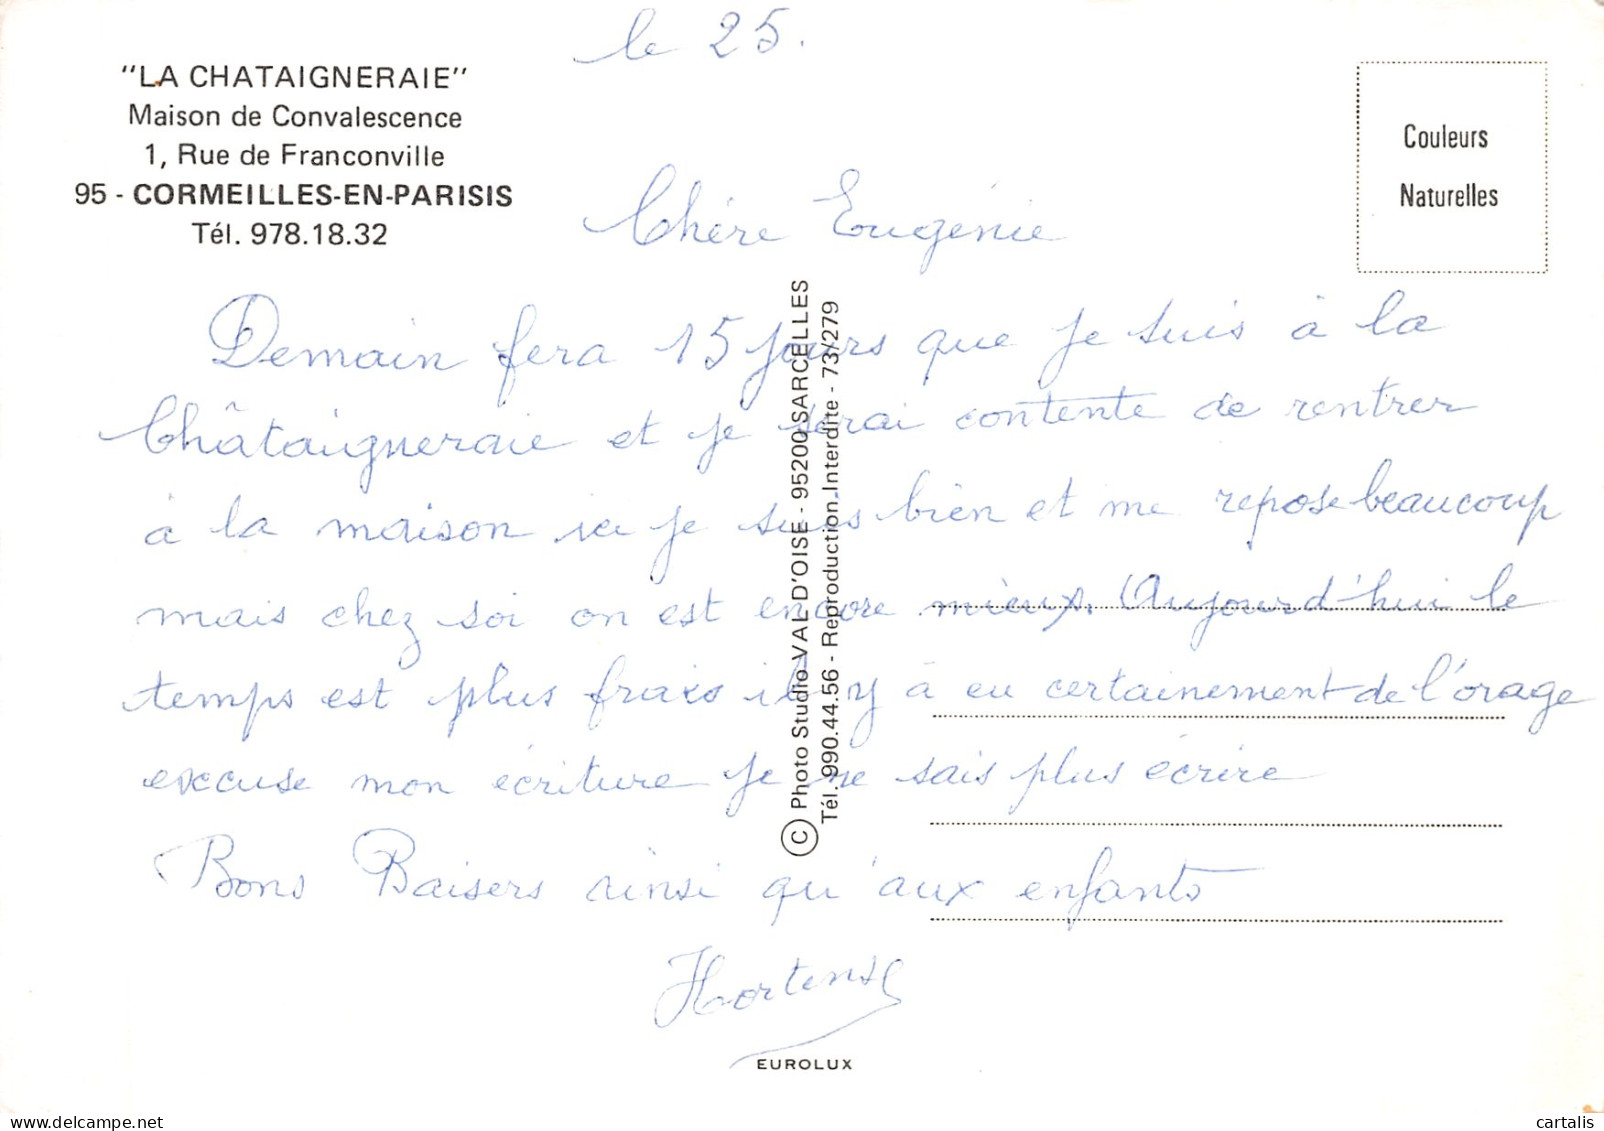 le 25.
"LA CHATAIGNERAIE"
Maison de Convalescence
1, Rue de Franconville
95 - CORMEILLES-EN-PARISIS
Tél. 978.18.32
Couleurs
Naturelles
Chére Eugénie
Demain fera 15 jours que je suis à la
Châtaigneraie et je serai contente de rentrer
à la maison ici je suis bien et me repose beaucoup
mais chez soi on est encore mieux. Aujourd'hui le
temps est plus frais il y à eu certainement de l'orage
excuse mon écriture je ne sais plus écrire
Bons Baisers ainsi qu'aux enfants
Hortense
© Photo Studio VAL D'OISE - 95200 SARCELLES
Tél. 990.44.56 - Reproduction Interdite - 73/279
EUROLUX
cartalis